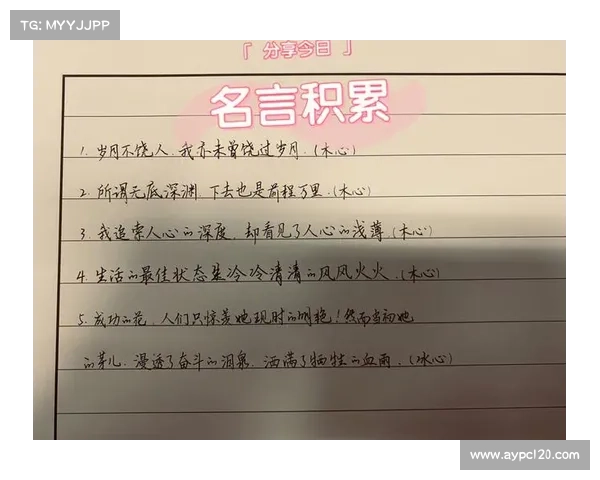 TG: MYYJJPP
「 分享今日 」
名言积累
1. 岁月不饶人,我亦未曾饶过岁月.(木心)
2. 所谓无底深渊,下去也是前程万里.(木心)
3. 我追索人心的深度,却看见了人心的浅薄.(木心)
4. 生活的最佳状态是冷冷清清的风风火火.(木心)
5. 成功的花,人们只惊羡她现时的明艳!然而当初她
的芽儿,浸透了奋斗的泪泉,洒满了牺牲的血雨.(冰心)
www.aypc120.com